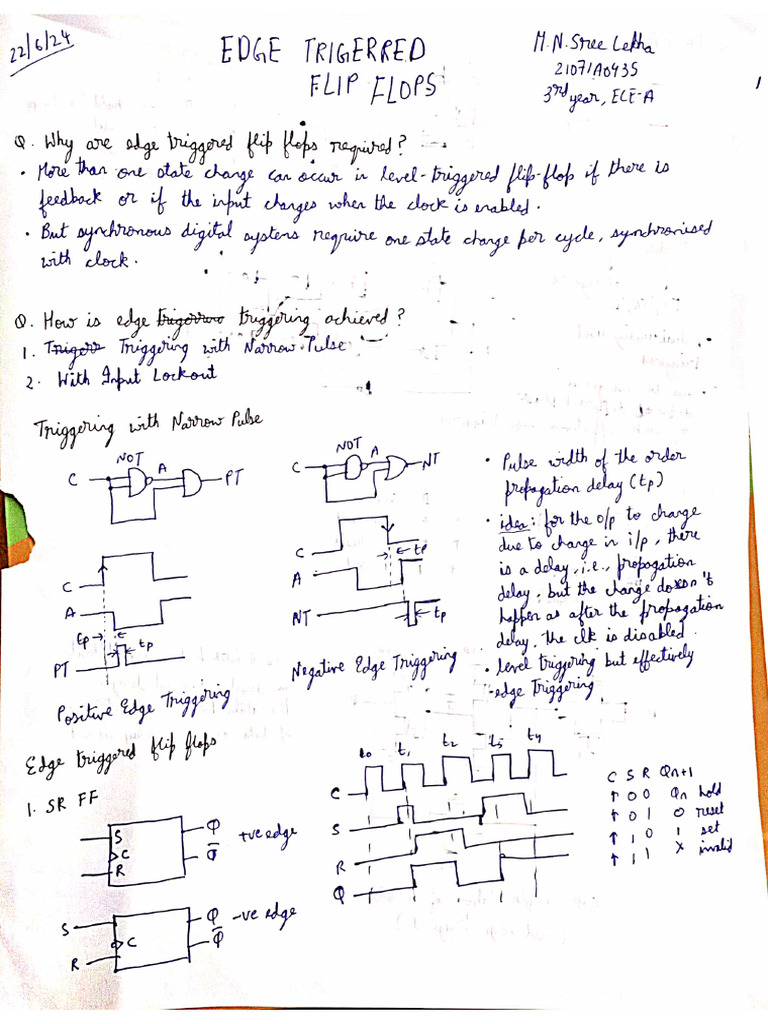 22/6/24
EDGE TRIGERRED
FLIP FLOPS
M.N.Sree Lekha
21071A0435
3rd year, ECE-A
1
Q. Why are edge triggered flip flops required?
• More than one state change can occur in level-triggered flip-flop if there is
feedback or if the input changes when the clock is enabled.
• But synchronous digital systems require one state change per cycle, synchronised
with clock.
Q. How is edge triggering achieved?
1. Triggering with Narrow Pulse
2. With Input Lockout
Triggering with Narrow Pulse
NOT
C
A
PT
NOT
C
A
NT
• Pulse width of the order
propagation delay (tp)
• idea: for the o/p to change
due to change in i/p, there
is a delay, i.e., propogation
delay, but the change doesn't
happen as after the propagation
delay, the clk is disabled.
• level triggering but effectively
edge Triggering
C
A
tp
tp
PT
Positive Edge Triggering
C
tp
A
NT
tp
Negative Edge Triggering
Edge triggered flip flops
1. SR FF
S
C
R
Q
Q̅
+ve edge
S
R
C
Q
Q̅
-ve edge
t0 t1 t2 t3 t4
C
S
R
Q
C S R Qn+1
↑ 0 0 Qn hold
↑ 0 1 0 reset
↑ 1 0 1 set
↑ 1 1 X invalid